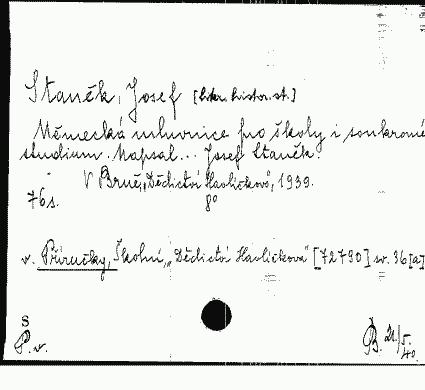 Staněk, Josef [liter. histor. st.]
Německá mluvnice pro školy i soukromé
studium. Napsal... Josef Staněk.
V Brně, „Dědictví Havlíčkovo", 1939.
76 s. 8°
v. Příručky, Školní, „Dědictví Havlíčkova" [72790] sv. 36[a]
S
P. v. B. 21/5. 40.